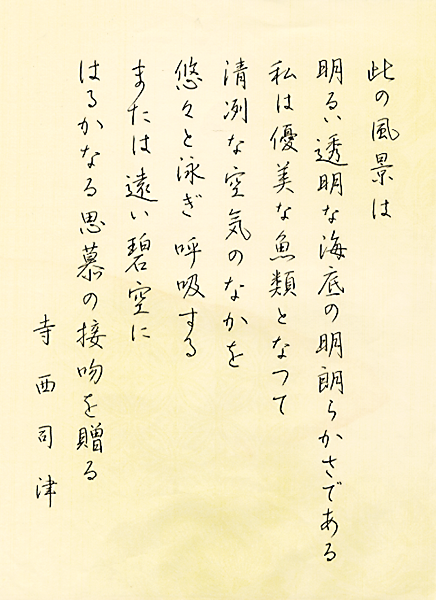 此の風景は
明るい透明な海底の明朗らかさである
私は優美な魚類となつて
清冽な空気のなかを
悠々と泳ぎ呼吸する
または遠い碧空に
はるかなる思慕の接吻を贈る
寺西司津